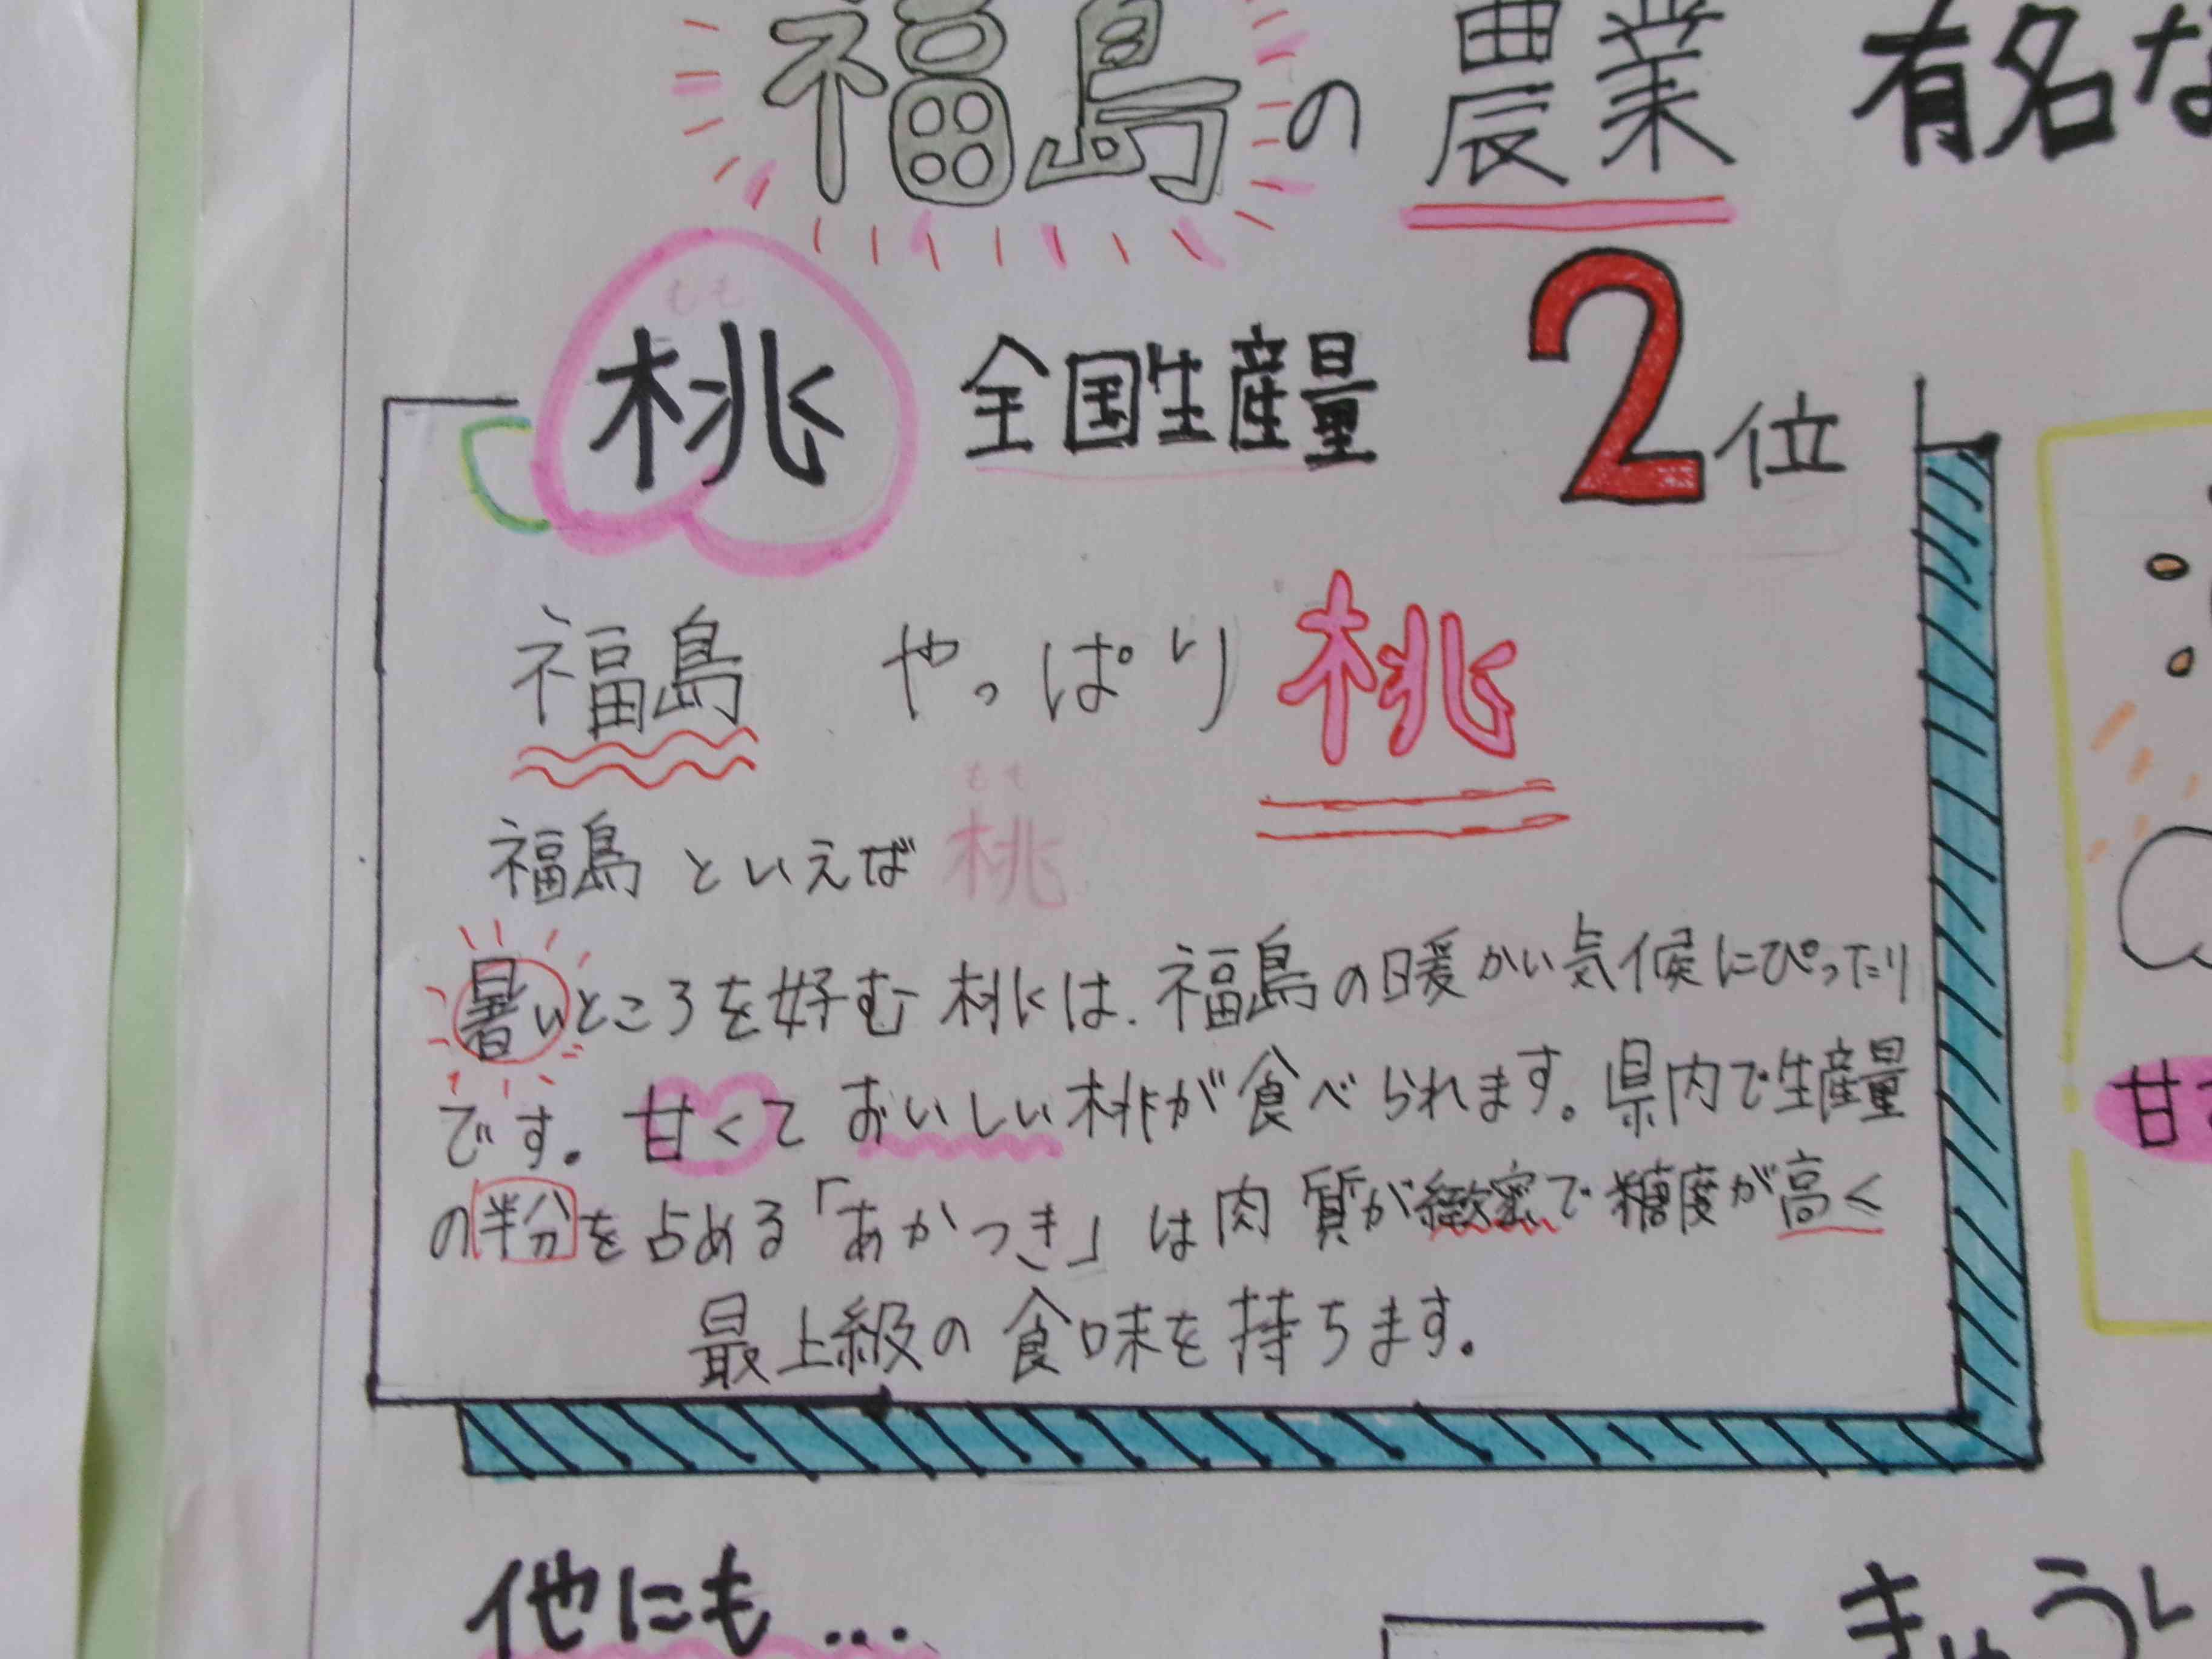 福島の農業
有名な
もも
桃 全国生産量 2位
福島 やっぱり桃
もも
福島といえば桃
暑いところを好む桃は、福島の暖かい気候にぴったり
です。甘くておいしい桃が食べられます。県内で生産量
の半分を占める「あかつき」は肉質が緻密で糖度が高く
最上級の食味を持ちます。
甘
他にも...
きゅうり